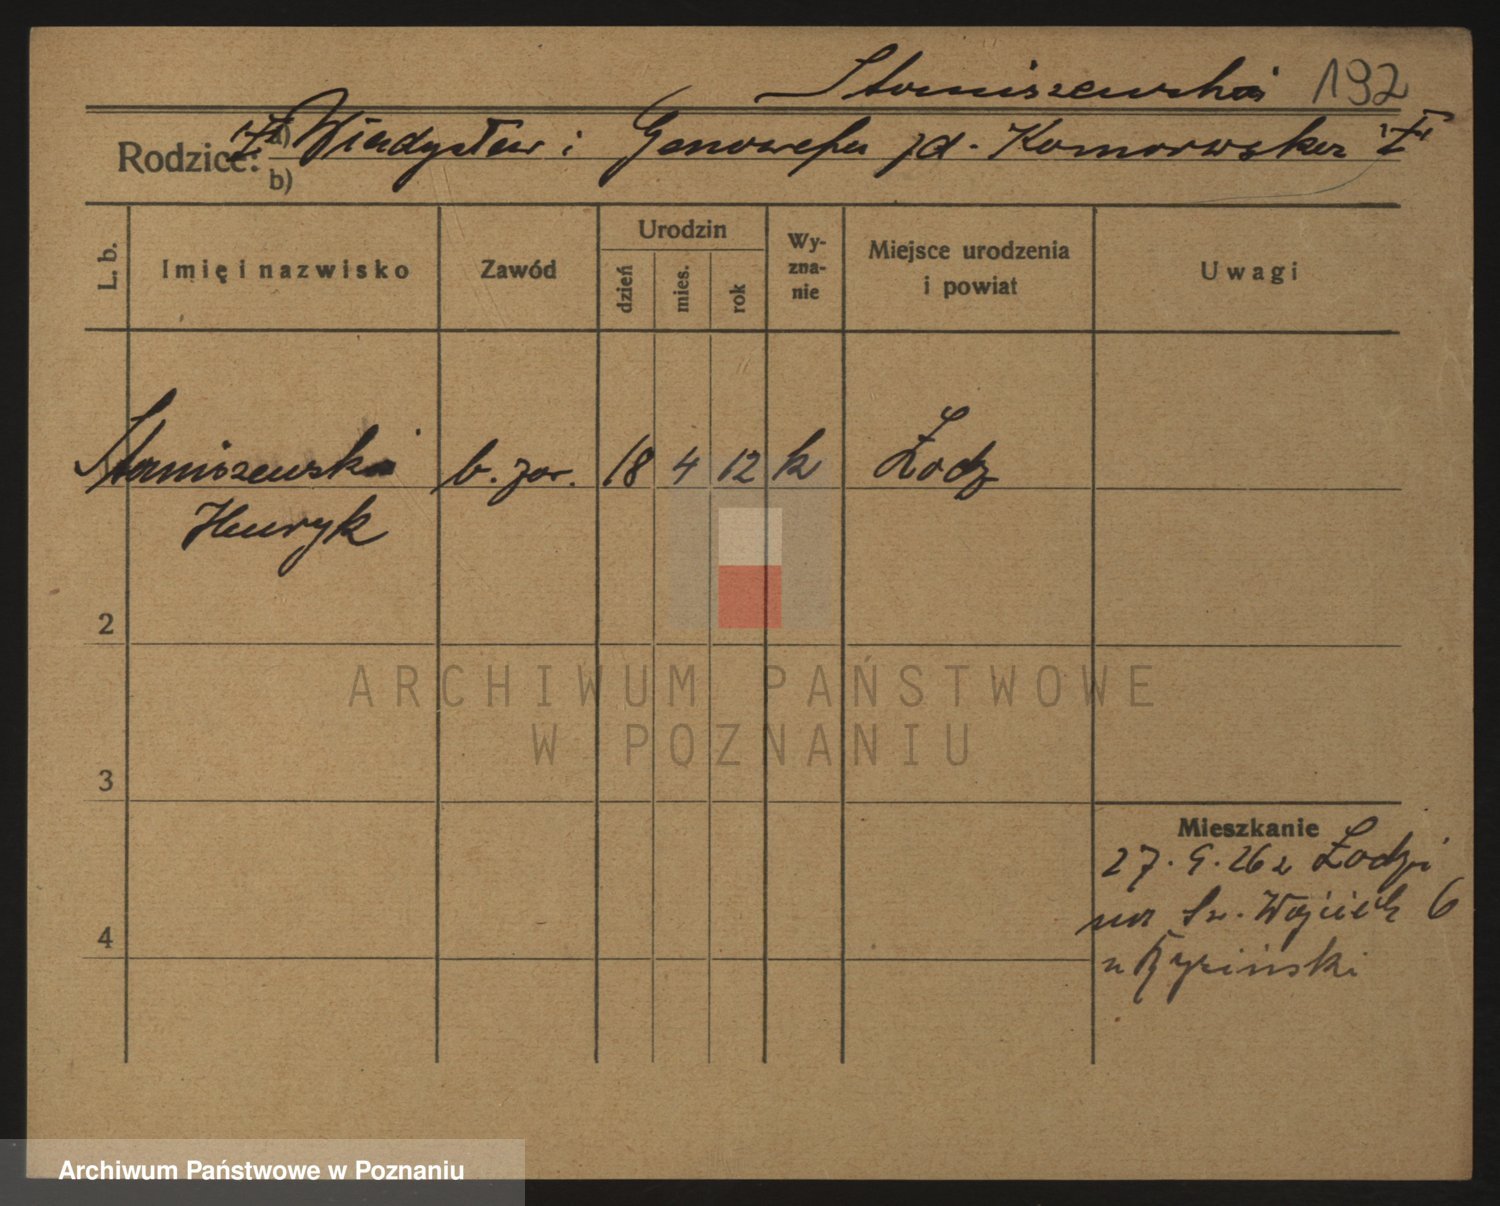 Staniszewski 192
Rodzice: a) Władysław i Genowefa zd. Komorowska
b)
L. b. Imię i nazwisko Zawód Urodzin dzień mies. rok Wyznanie Miejsce urodzenia i powiat Uwagi
Staniszewski b. zar. 18 4 12 k Łodz
Henryk
2
3
4
Mieszkanie
27. 9. 26 z Łodzi
na Św. Wojciech 6
ARCHIWUM PAŃSTWOWE
W POZNANIU
Archiwum Państwowe w Poznaniu